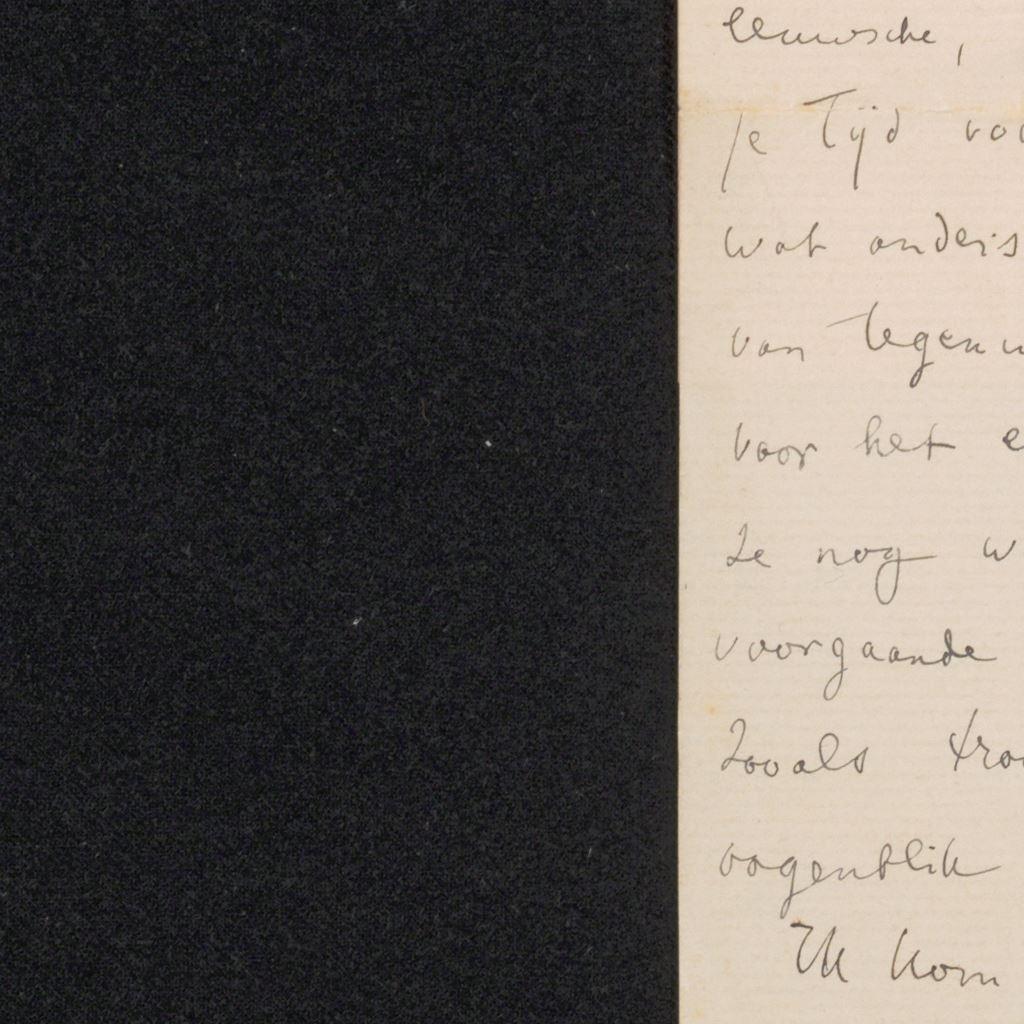 eeuwsche,
je tijd voo
wat anders
van tegenw
voor het e
ze nog w
voorgaande
zooals troo
oogenblik
Ik kom